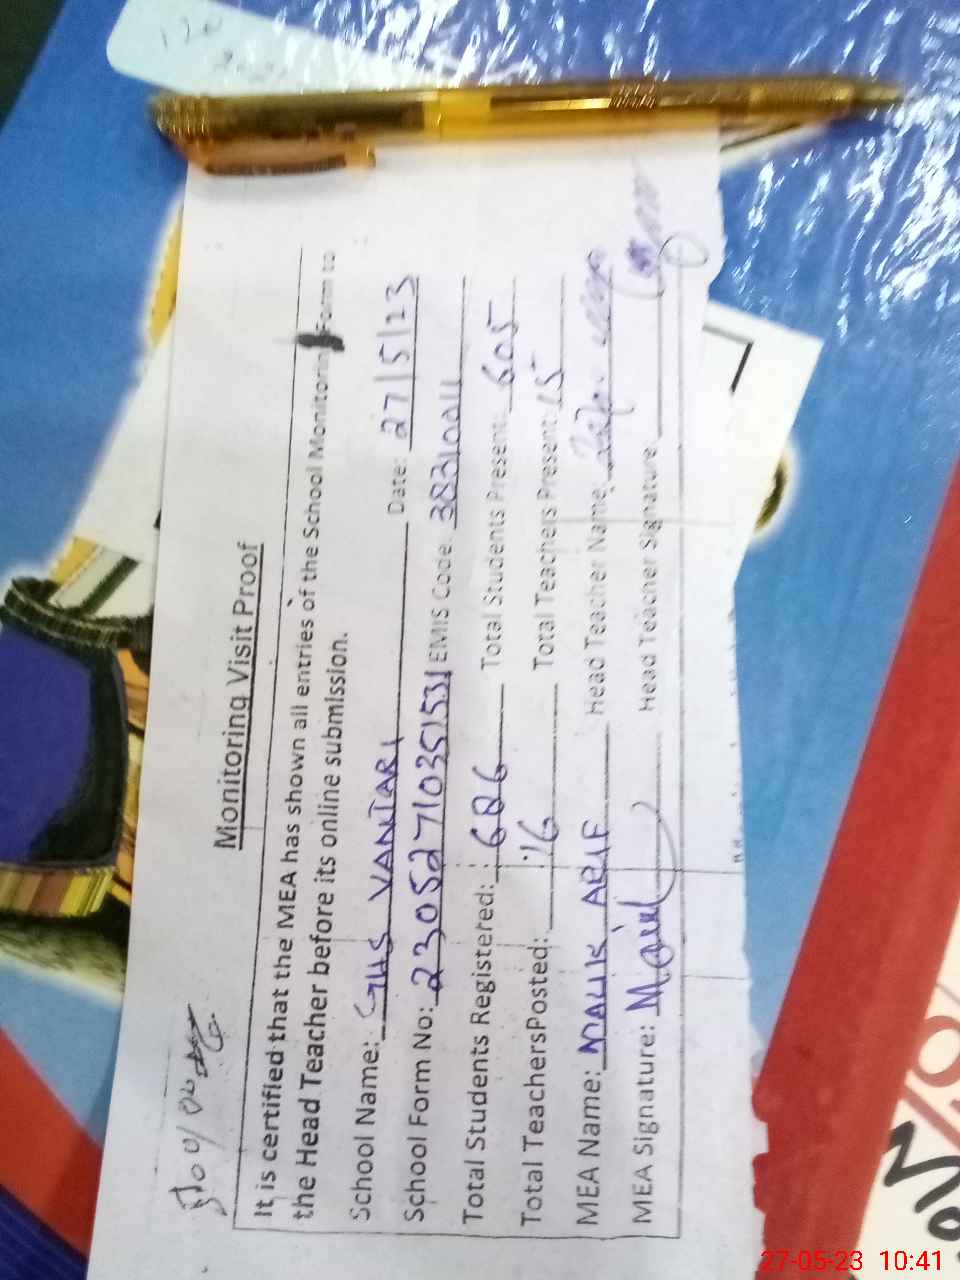 Monitoring Visit Proof
It is certified that the MEA has shown all entries of the School Monitoring Form to
the Head Teacher before its online submission.
School Name: GHS VANTARI Date: 27/5/23
School Form No: 23052710351531 EMIS Code: 38310011
Total Students Registered: 686 Total Students Present: 605
Total TeachersPosted: 16 Total Teachers Present: 15
MEA Name: MALIK ARIF Head Teacher Name:
MEA Signature: Head Teacher Signature:
27-05-23 10:41